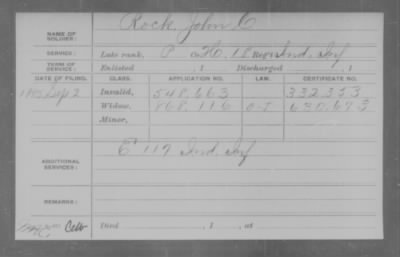 NAME OF SOLDIER: Rock, John C
SERVICE: Late rank, P Co. H, 18 Reg't Ind. Inf
TERM OF SERVICE: Enlisted , 1 Discharged , 1
DATE OF FILING. CLASS. APPLICATION NO. LAW. CERTIFICATE NO.
Sep 2 Invalid, 548.663 332.353
Widow, 868.116 630.673
Minor,
ADDITIONAL SERVICES: 117 Ind. Inf
REMARKS:
Died , 1 , at